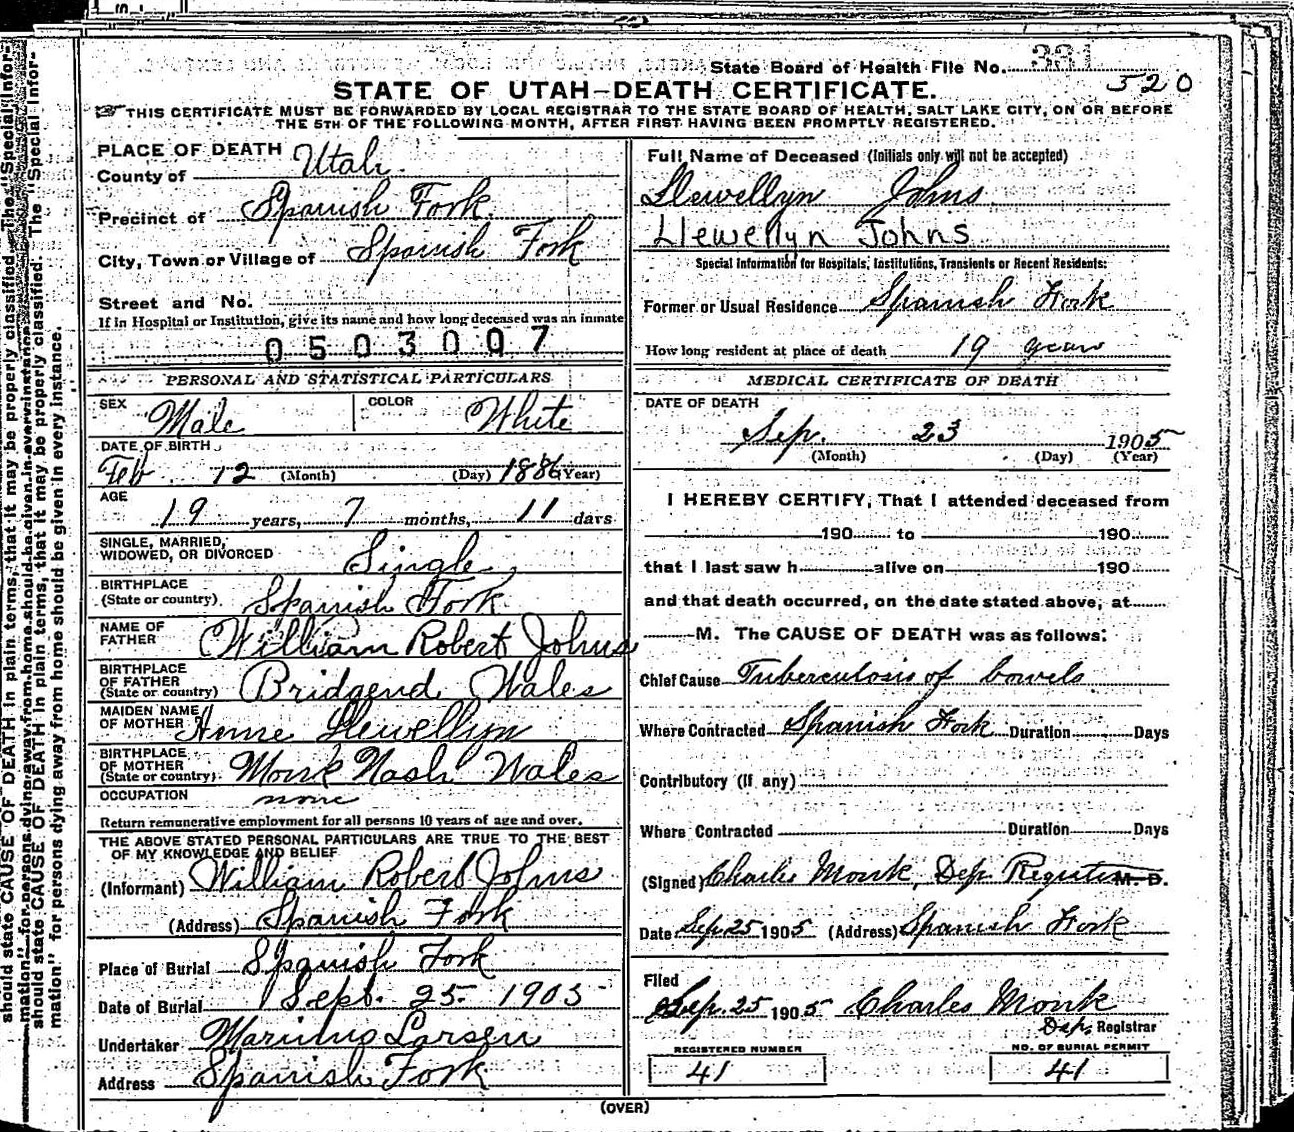 State Board of Health File No. 331
520
STATE OF UTAH—DEATH CERTIFICATE.
THIS CERTIFICATE MUST BE FORWARDED BY LOCAL REGISTRAR TO THE STATE BOARD OF HEALTH, SALT LAKE CITY, ON OR BEFORE
THE 5TH OF THE FOLLOWING MONTH, AFTER FIRST HAVING BEEN PROMPTLY REGISTERED.
PLACE OF DEATH
County of Utah
Precinct of Spanish Fork
City, Town or Village of Spanish Fork
Street and No.
If in Hospital or Institution, give its name and how long deceased was an inmate
0503007
PERSONAL AND STATISTICAL PARTICULARS
SEX Male COLOR White
DATE OF BIRTH
Feb 12 (Month) (Day) 1886 (Year)
AGE
19 years, 7 months, 11 days
SINGLE, MARRIED,
WIDOWED, OR DIVORCED Single
BIRTHPLACE
(State or country) Spanish Fork
NAME OF
FATHER William Robert Johns
BIRTHPLACE
OF FATHER
(State or country) Bridgend Wales
MAIDEN NAME
OF MOTHER Llewellyn
BIRTHPLACE
OF MOTHER
(State or country) Monk Nash Wales
OCCUPATION none
Return remunerative employment for all persons 10 years of age and over.
THE ABOVE STATED PERSONAL PARTICULARS ARE TRUE TO THE BEST
OF MY KNOWLEDGE AND BELIEF
(Informant) William Robert Johns
(Address) Spanish Fork
Place of Burial Spanish Fork
Date of Burial Sept. 25 1905
Undertaker Marinus Larsen
Address Spanish Fork
Full Name of Deceased (Initials only will not be accepted)
Llewellyn Johns
Llewellyn Johns
Special Information for Hospitals, Institutions, Transients or Recent Residents:
Former or Usual Residence Spanish Fork
How long resident at place of death 19 years
MEDICAL CERTIFICATE OF DEATH
DATE OF DEATH
Sep. 23 1905
(Month) (Day) (Year)
I HEREBY CERTIFY, That I attended deceased from
190 to 190
that I last saw h alive on 190
and that death occurred, on the date stated above, at
M. The CAUSE OF DEATH was as follows:
Chief Cause Tuberculosis of bowels
Where Contracted Spanish Fork Duration Days
Contributory (if any)
Where Contracted Duration Days
(Signed) Charles Monk, Dep Register M. D.
Date Sep 25 1905 (Address) Spanish Fork
Filed
Sep. 25 1905 Charles Monk
Dep. Registrar
REGISTERED NUMBER
41
NO. OF BURIAL PERMIT
41
(OVER)
should state CAUSE OF DEATH in plain terms, that it may be properly classified. The "Special Infor-
mation" for persons dying away from home should be given in every instance.
should state CAUSE OF DEATH in plain terms, that it may be properly classified. The "Special Infor-
mation" for persons dying away from home should be given in every instance.